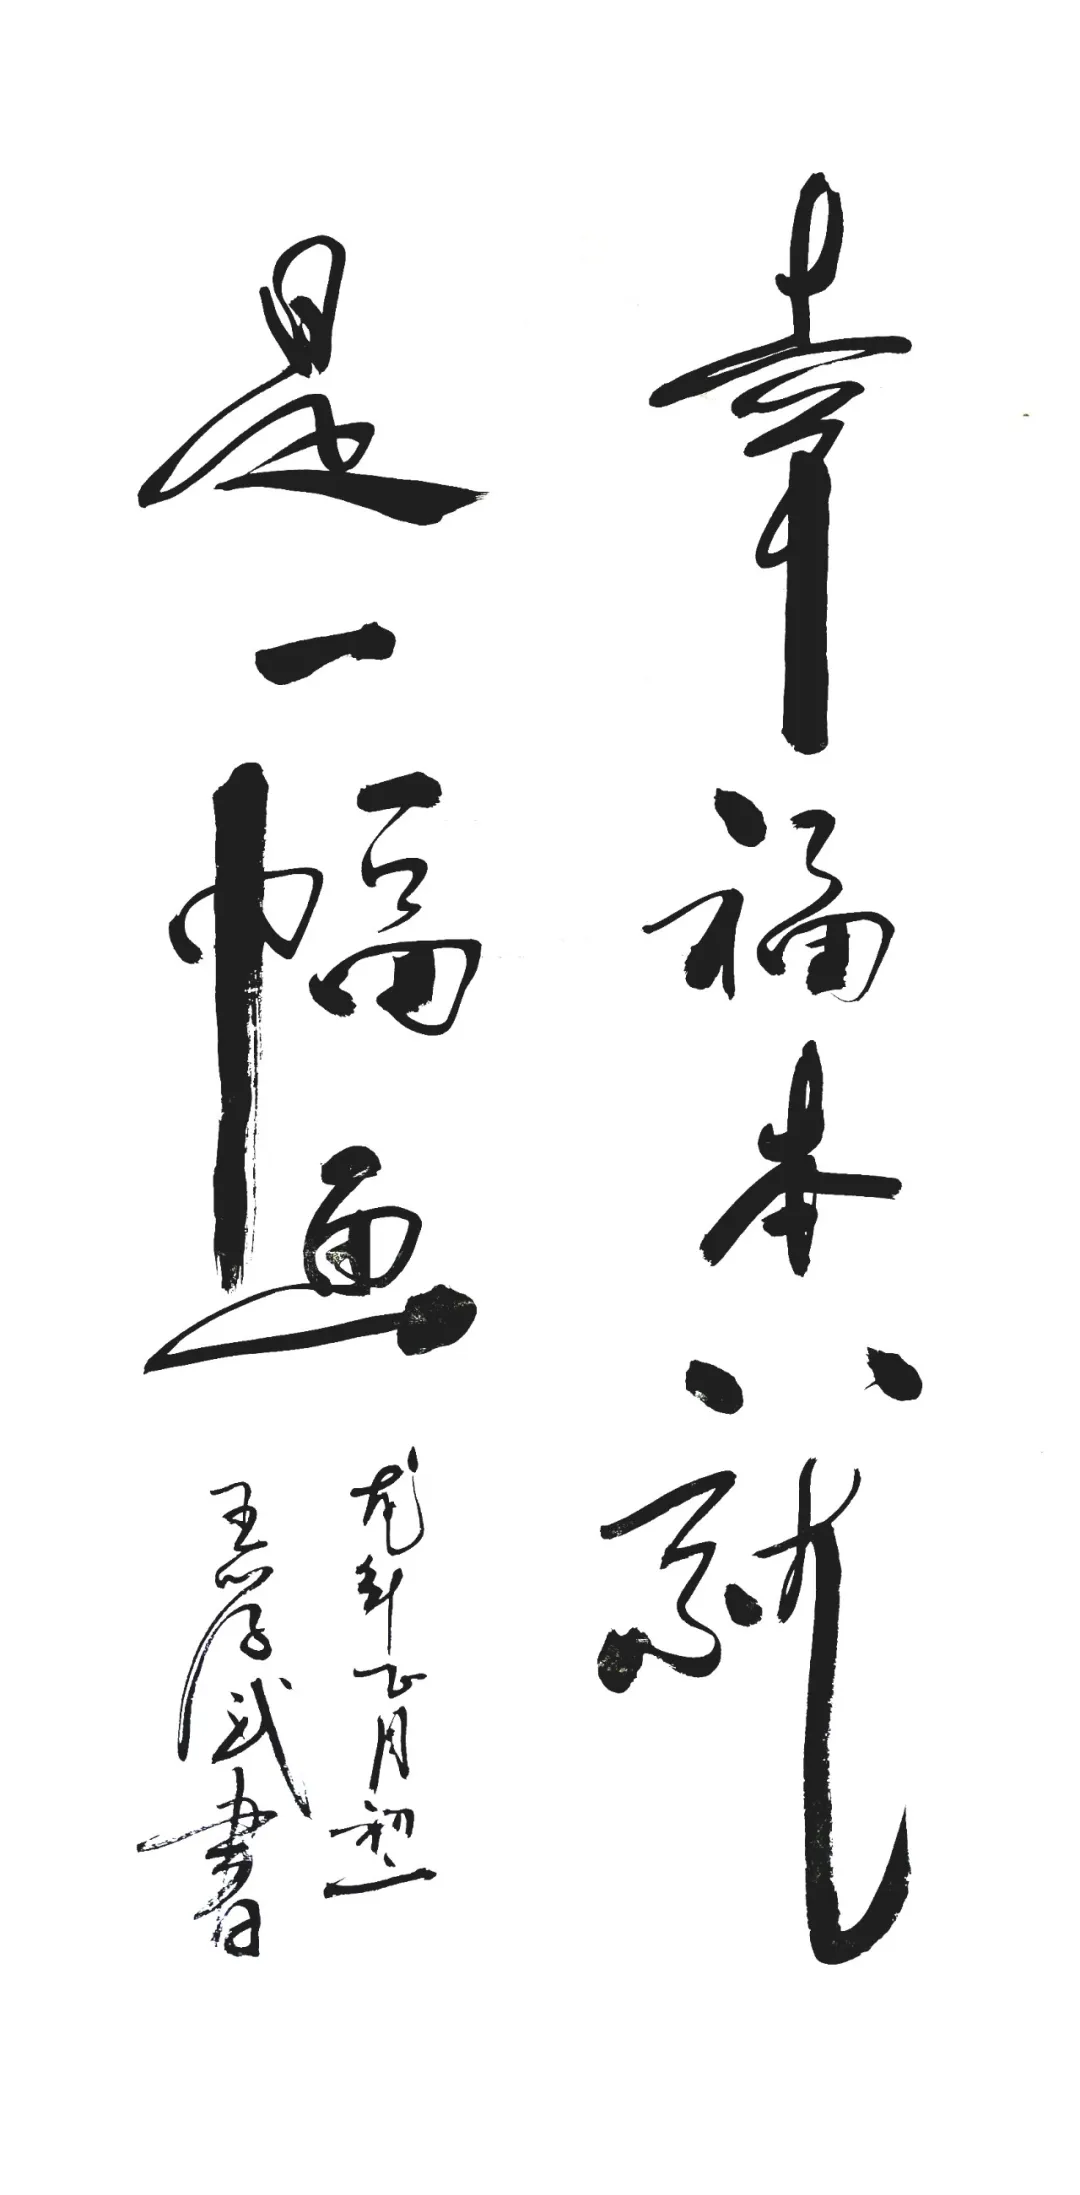 幸福本就
是一幅画
龙年正月初一
王厚武書